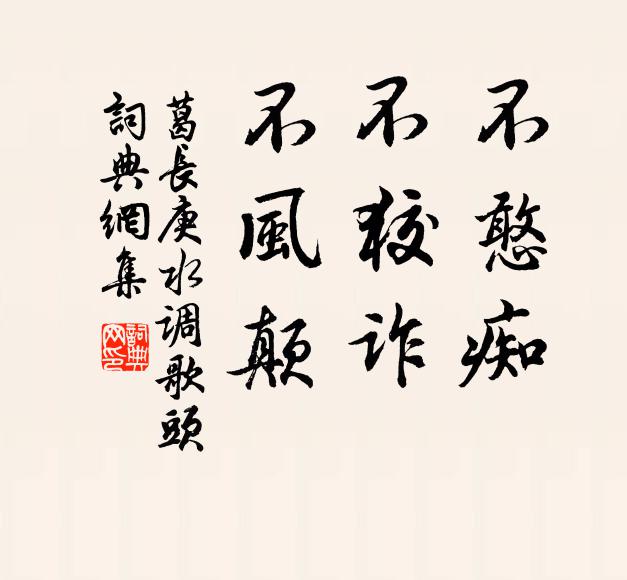 不憨痴
不狡诈
不風顛
葛長庚水調歌頭
詞典網集
詞典
网印